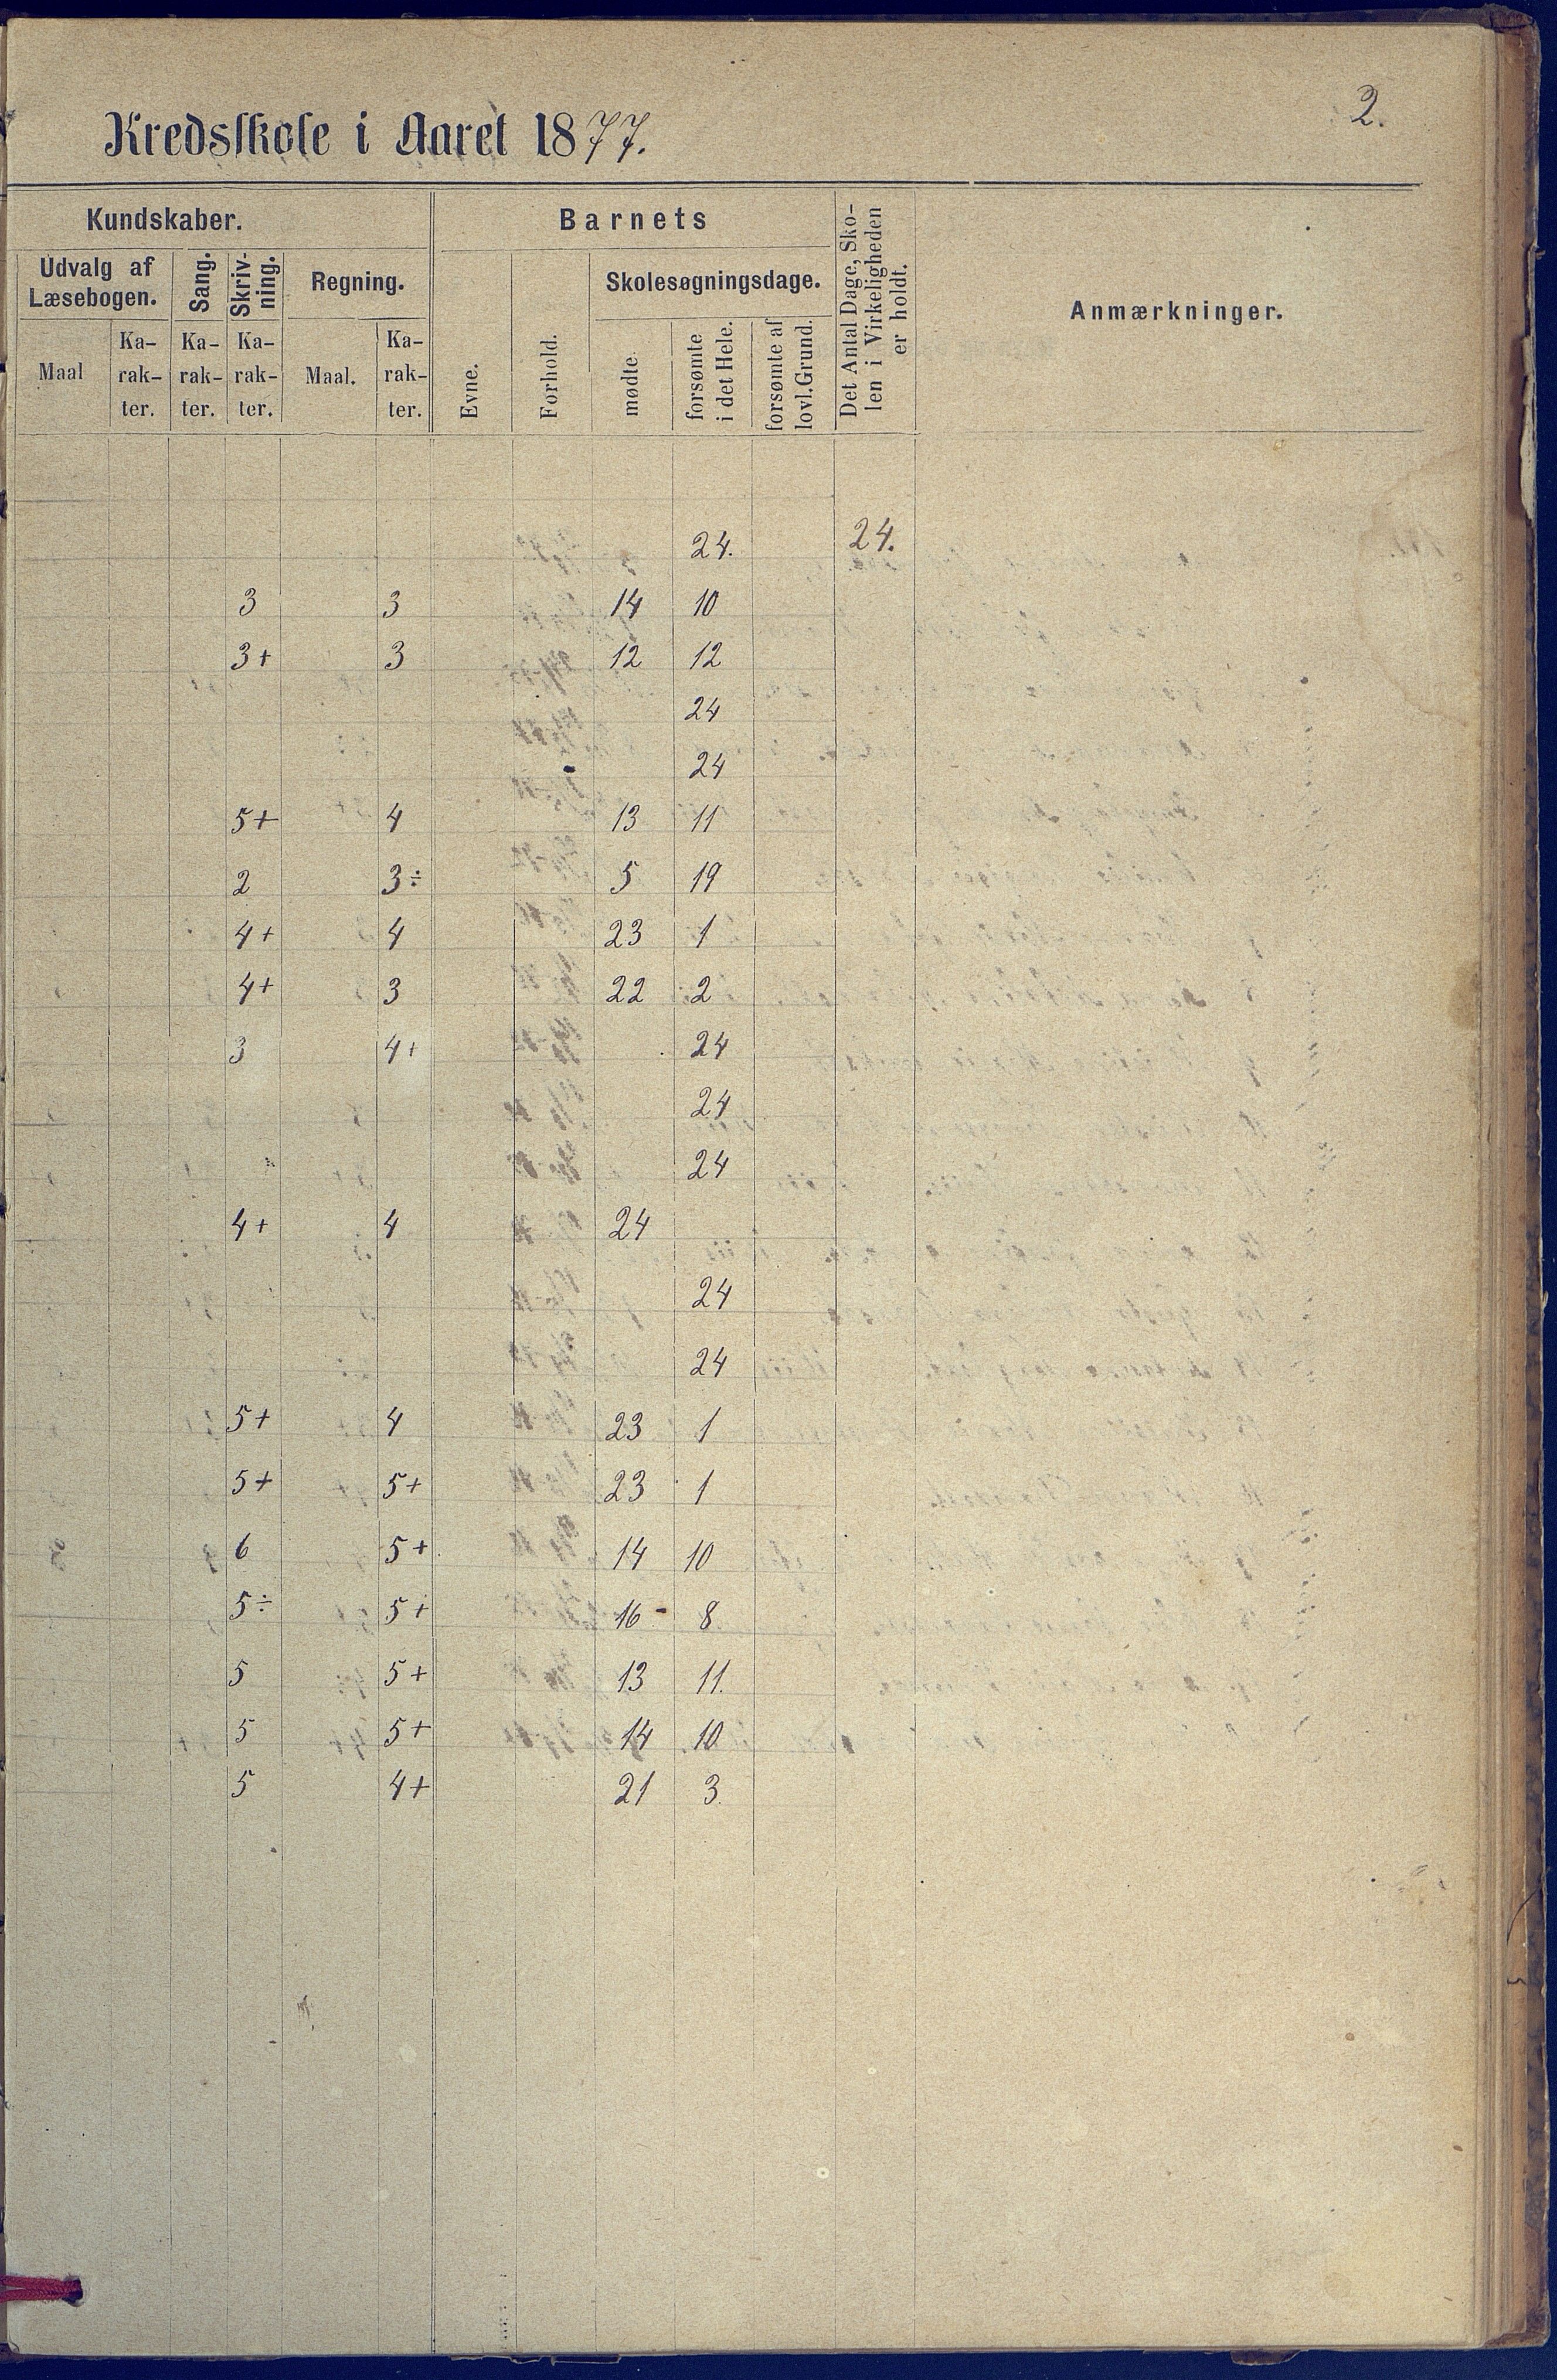 2.
Kredsskole i Aaret 1877.
Kundskaber. Barnets Det Antal Dage, Sko-
len i Virkeligheden
er holdt. Anmærkninger.
Udvalg af
Læsebogen. Sang. Skriv-
ning. Regning. Skolesøgningsdage.
Maal Ka-
rak-
ter. Ka-
rak-
ter. Ka-
rak-
ter. Maal. Ka-
rak-
ter. Evne. Forhold. mødte. forsømte
i det Hele. forsømte af
lovl. Grund.
24. 24.
3 3 14 10
3+ 3 12 12
24
24
5+ 4 13 11
2 3÷ 5 19
4+ 4 23 1
4+ 3 22 2
3 4+ 24
24
24
4+ 4 24
24
24
5+ 4 23 1
5+ 5+ 23 1
6 5+ 14 10
5÷ 5+ 16 - 8
5 5+ 13 11.
5 5+ 14 10
5 4+ 21 3